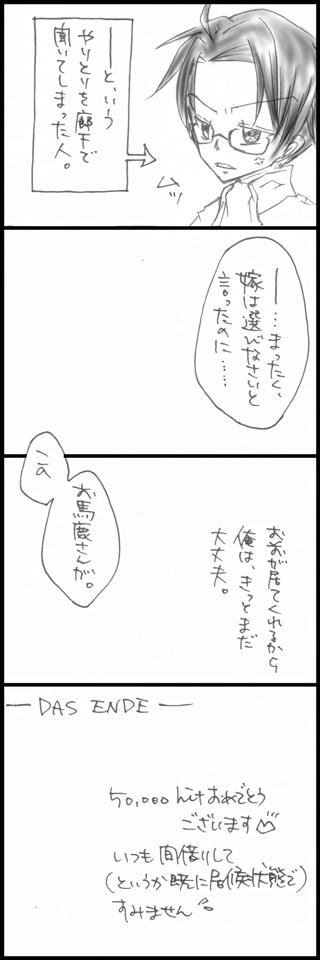 ――と、いう
やりとりを廊下で
聞いてしまった人。
ムッ
――…まったく、
嫁は選びなさいと
言ったのに……
この
お馬鹿さんが。
お前が居てくれるから
俺は、きっとまだ
大丈夫。
― DAS ENDE ―
50,000hitおめでとう
ございます
いつも間借りして
(というか既に居候状態で)
すみません